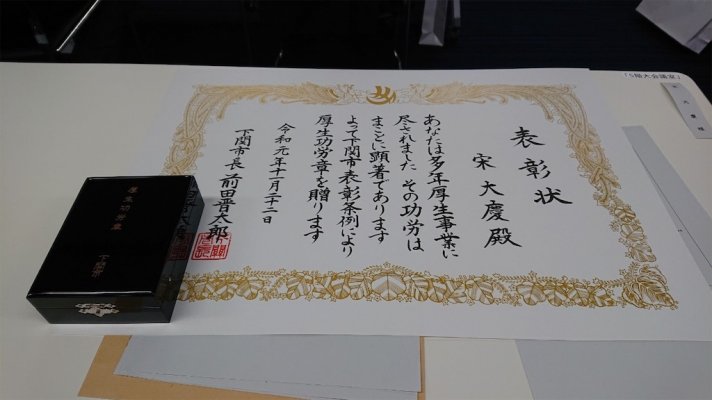 表彰状
宋大慶殿
あなたは多年厚生事業に
尽されました その功労は
まことに顕著であります
よって下関市表彰条例により
厚生功労章を贈ります
令和元年十一月二十二日
下関市長 前田晋太郎
厚生功労章
下関市
「5階大会議室」
大慶様